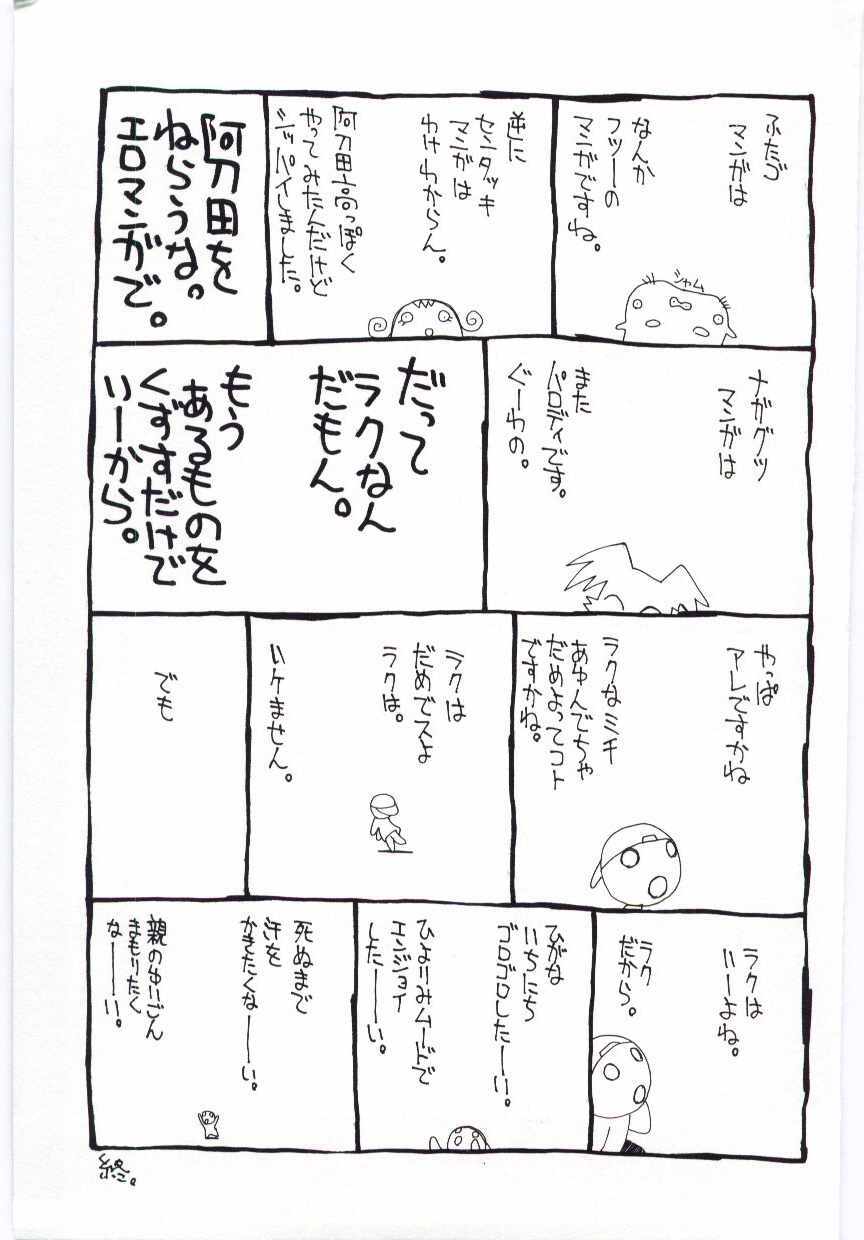 ふたゴ
マンガは
なんか
フツーの
マンガですね。
シャム
逆に
センタッキ
マンガは
わけわからん。
阿刀田高っぽく
やってみたんだけど
シッパイしました。
阿刀田を
ねらうな。
エロマンガで。
ナガグツ
マンガは
また
パロディです。
ぐーわの。
だって
ラクなん
だもん。
もう
あるものを
くずすだけで
いーから。
やっぱ
アレですかね
ラクなミチ
あゆんでちゃ
だめよってコト
ですかね。
ラクは
だめでスよ
ラクは。
いケません。
でも
ラクは
いーよね。
ラク
だから。
ひがな
いちにち
ゴロゴロしたーい。
ひよりみムードで
エンジョイ
したーい。
死ぬまで
汗を
かきたくなーい。
親のゆいごん
まもりたく
なーい。
終。